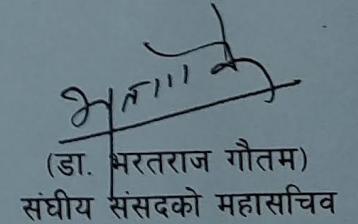 (डा. भरतराज गौतम)
संघीय संसदको महासचिव